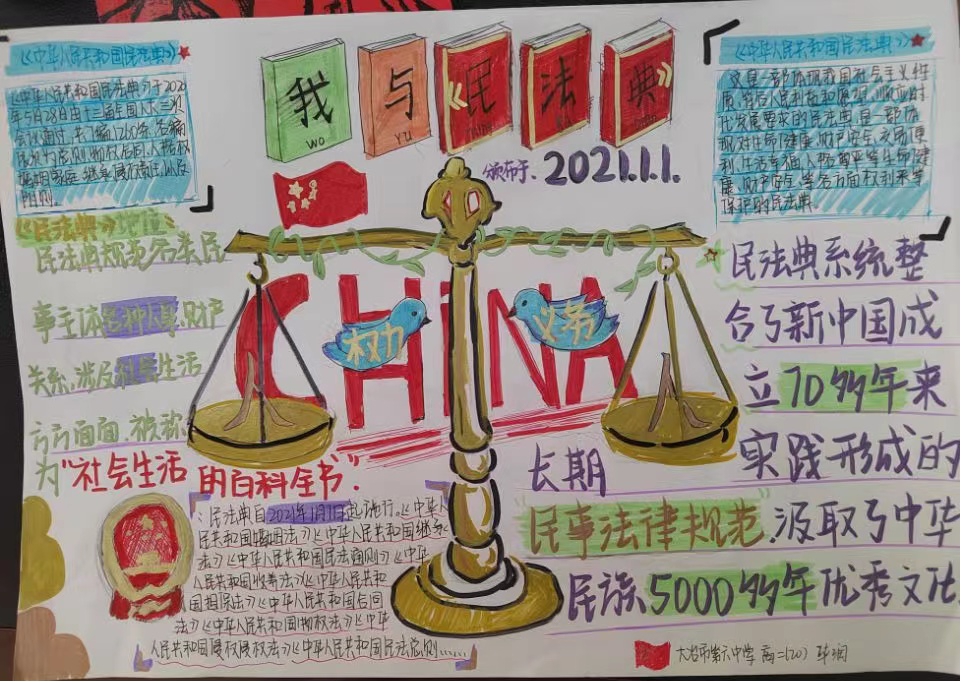 我与《民法典》
WO YU
颁布于、2021.1.1.
《中华人民共和国民法典》
《中华人民共和国民法典》于2020
年5月28日由十三届全国人大三次
会议通过,共7编、1260条,各编
《中华人民共和国民法典》
这是一部体现我国社会主义性
质、符合人民利益和愿望、顺应时
代发展要求的民法典,是一部体
现对生命健康、财产安全、交易便
利、生活幸福、人格尊严等
康、财产安全、等各方面权利平等
保护的民法典
《民法典》地位:
民法典规范各类民
事主体各种人身、财产
关系,涉及社会生活
方方面面,被称
为"社会生活的百科全书".
CHINA
权力
义务
民法典系统整
合了新中国成
立70多年来
长期实践形成的
民事法律规范,汲取了中华
民族5000多年优秀文化.
:民法典自2021年1月1日起施行。《中华人
民共和国婚姻法》《中华人民共和国继承
法》《中华人民共和国民法通则》《中华
人民共和国收养法》《中华人民共和
国担保法》《中华人民共和国合同
法》《中华人民共和国物权法》《中华
人民共和国侵权责任法》《中华人民共和国民法总则......
大冶市第六中学 高二(20)